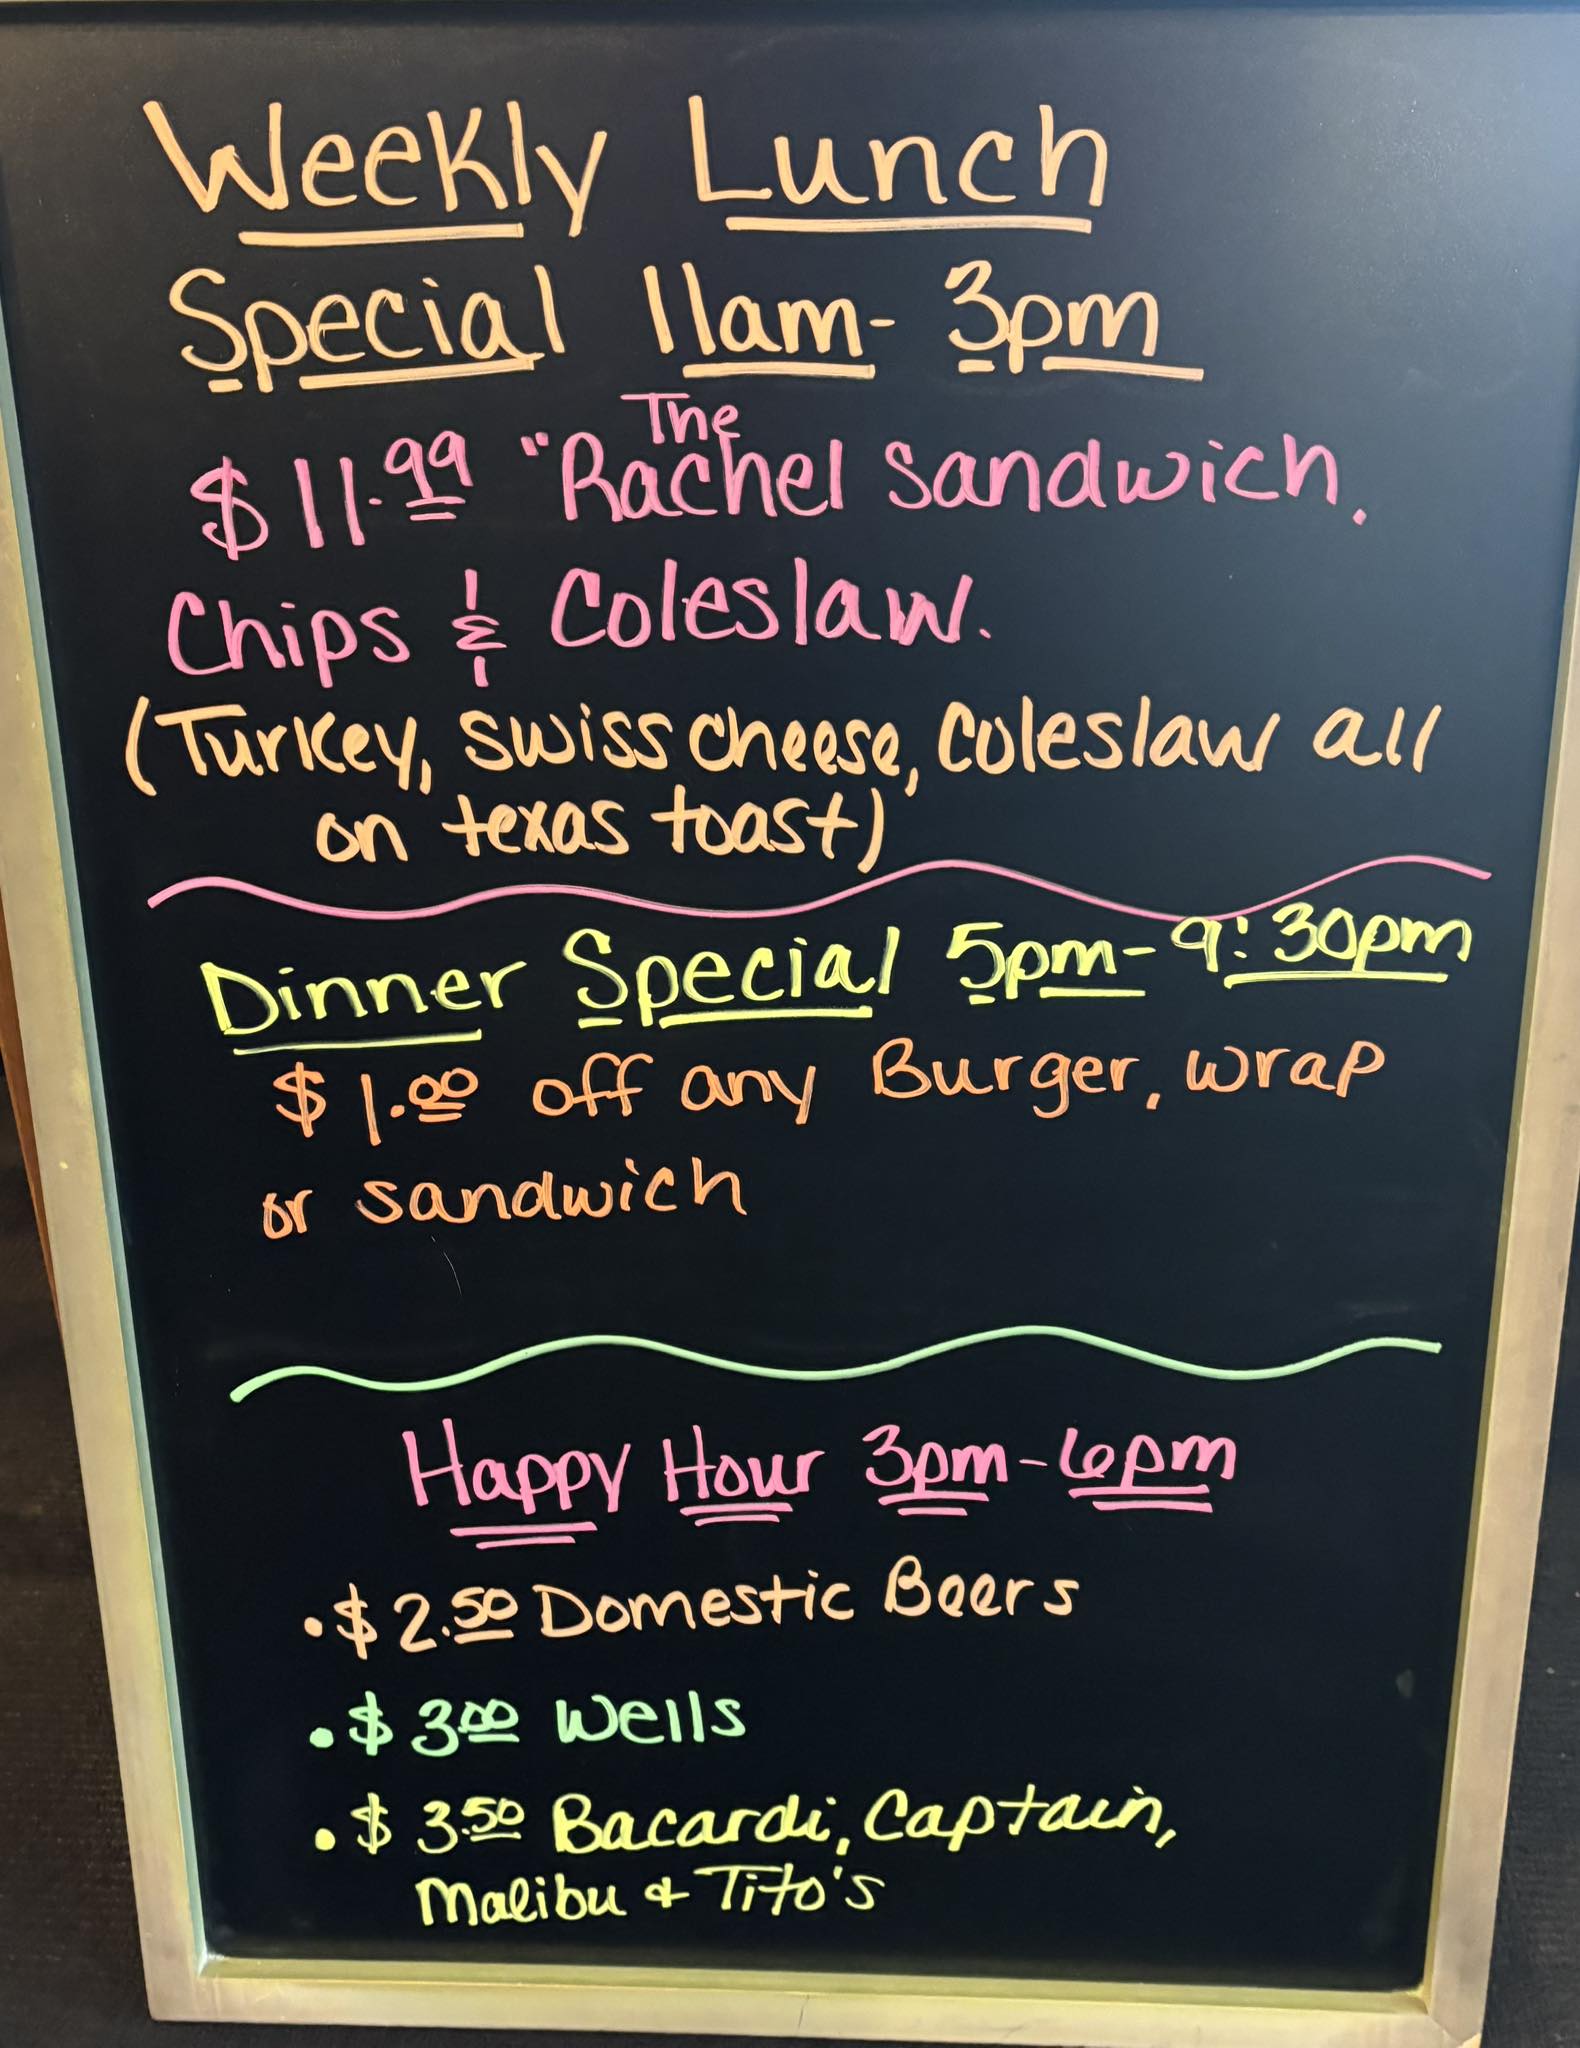 Weekly Lunch
Special 11am - 3pm
The
$11.99 "Rachel sandwich.
Chips & Coleslaw.
(Turkey, swiss cheese, coleslaw all
on texas toast)
Dinner Special 5pm - 9:30pm
$1.00 off any Burger, wrap
or sandwich
Happy Hour 3pm - 6pm
• $2.50 Domestic Beers
• $3.00 Wells
• $3.50 Bacardi, Captain,
Malibu & Tito's